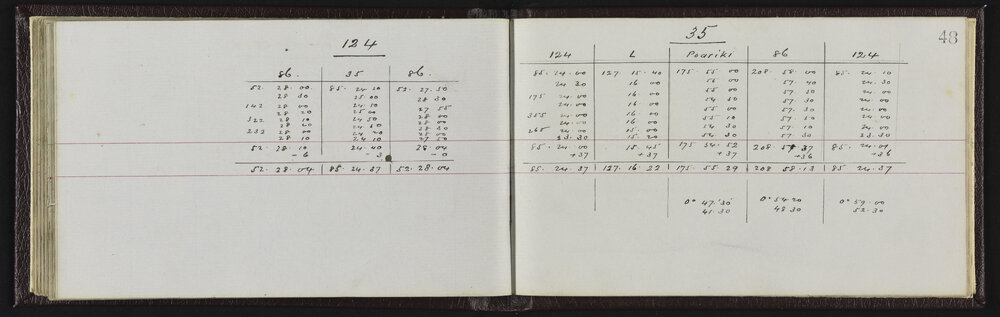 124
86. 35 86.
52. 28. 00. 85. 24 10 52. 27. 50
28 30 25 00 28 30
142 28 00 24. 10 27 55
28 20 25 00 28 00
322 28 10 24 50 28 00
28 20 24 50 28 20
232 28 00 24 20 28 00
28 10 24 10 27 50
52. 28. 10 24. 40 28. 04
- 6 - 3 - 0
52. 28. 04 85. 24. 37 52. 28. 04
48
35
124 L Poariki 86 124
85. 24. 00 127. 15. 40 175 55 00 208. 58. 00 85. 24. 10
24 30 16 00 55 00 57. 40 24. 30
175 24. 00 16 00 55 00 57. 30 24. 00
24. 00 16 00 54 50 57. 30 24. 00
355 24. 00 16 00 55 00 57. 30 24. 00
24. 00 16 00 55 10 57. 30 24. 00
265 24. 00 15. 00 54 30 57. 10 24. 00
23. 30 15. 20 54. 30 57. 30 23 30
85. 24. 00 15. 45 175 54. 52 208. 57. 37 85. 24. 01
+37 +37 +37 +36 +36
85. 24. 37 127. 16. 22 175. 55. 29 208 58. 13 85 24. 37
0° 47.'30" 0° 54. 20 0° 59. 00
41. 30 48 30 52. 30